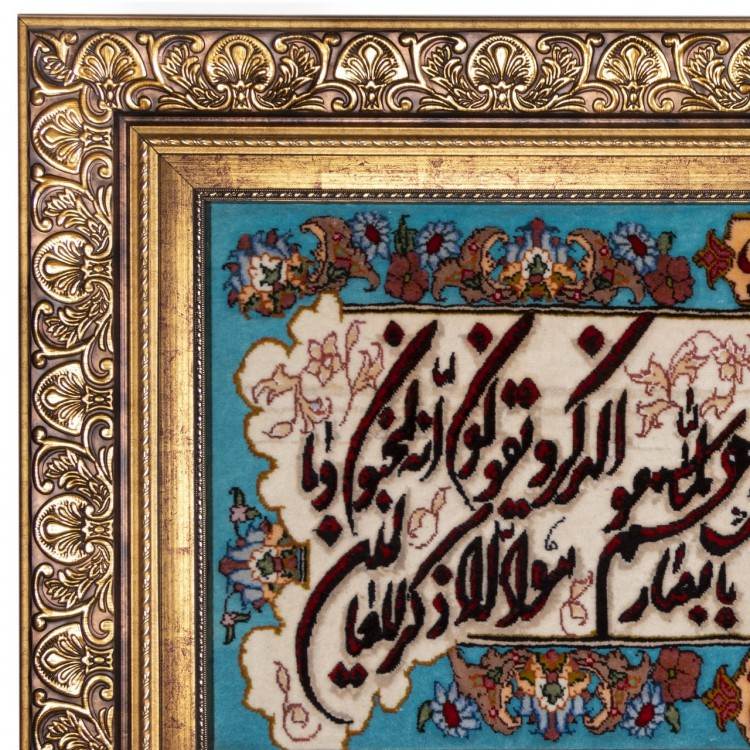 لما سمعوا الذكر و يقولون انه لمجنون و ما
بابصارهم هو الا ذكر للعالمین